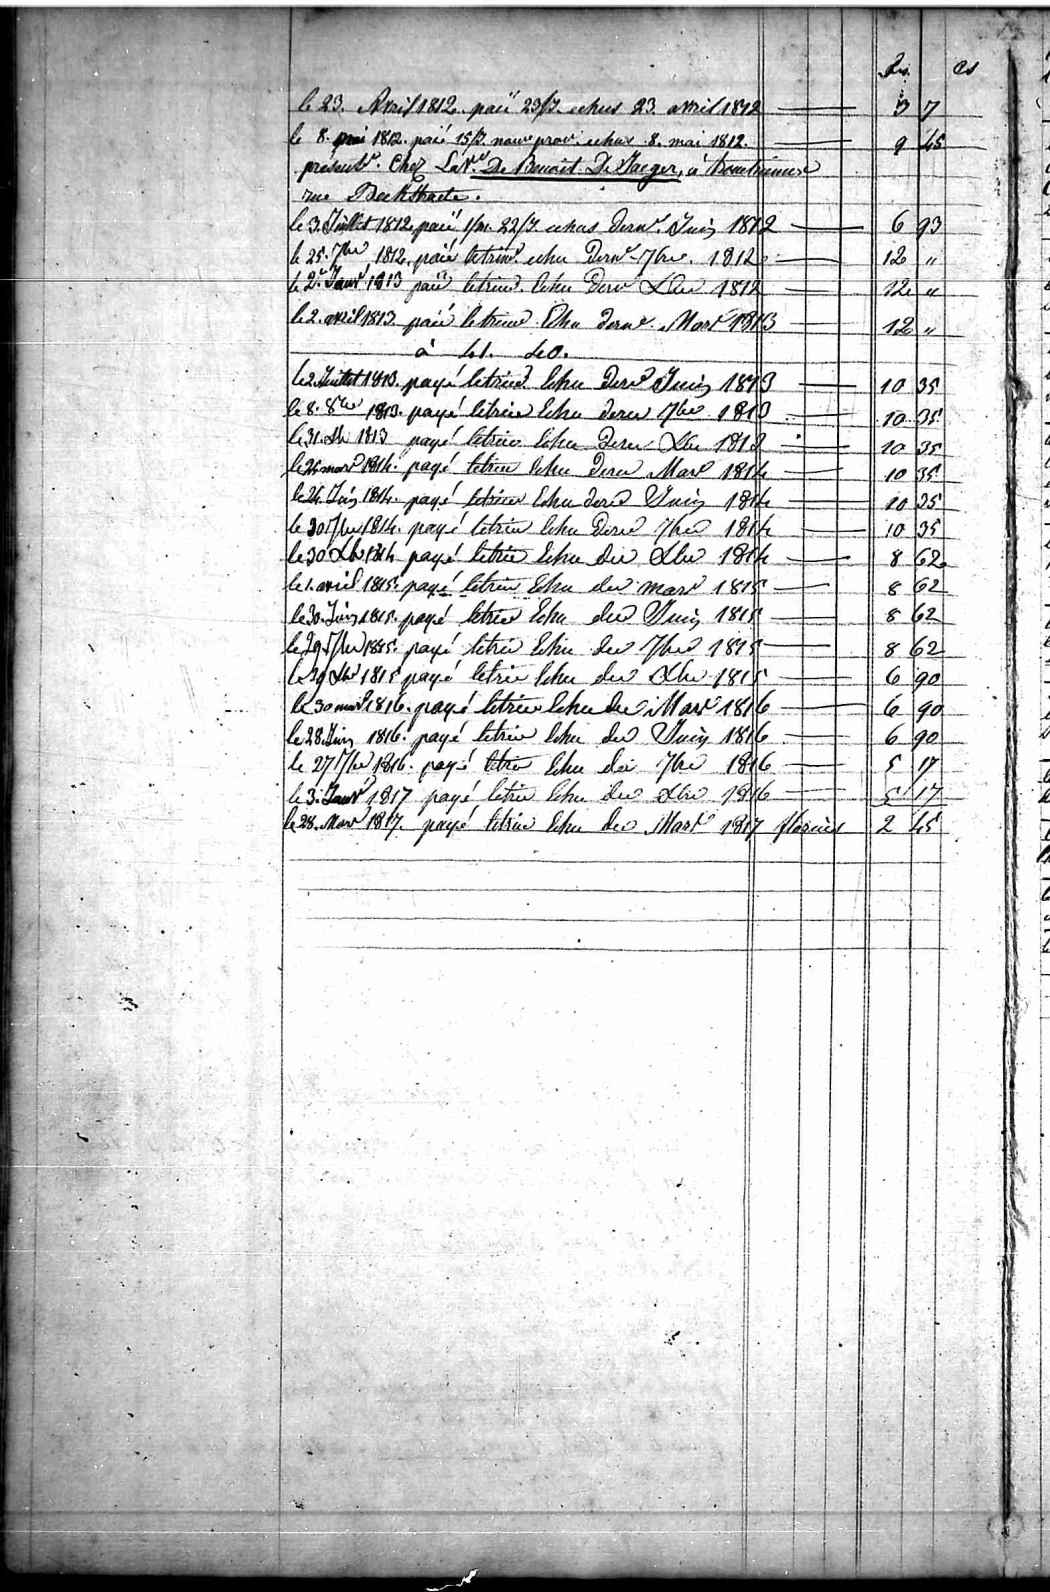 frs. cs
le 23. Avril 1812. paié 23/J. echus 23. avril 1812 3 7
le 8. mai 1812. paié 15/J. echus 8. mai 1812. 9 45
présentt. Chez La Ve. De Benoit De Jaeger, à
rue Beekstraete.
le 3. Juillet 1812, paié 1/m. 22/J. echus dernr. Juin 1812 6 93
le 25. 7bre 1812, paié letrimr. echu dernr 7bre. 1812 12 "
le 2. Janvr 1813 paié letrimr. Echu dernr Xbre 1812 12 "
le 2. avril 1813 paié letrimr. Echu dernr. Mars 1813 12 "
à
le 2. Juillet 1813. payé letrimr Echu Dernr Juin 1813 10 35
le 8. 8bre 1813. payé letrim Echu dern 7bre 1813 10 35
le 31. Xbr 1813 payé letrim Echu dern Xbre 1813 10 35
le 26 mars 1814. payé letrim Echu dern Mars 1814 10 35
le 24. Juin 1814. payé letrim Echu dern Juin 1814 10 35
le 30 7bre 1814. payé letrim Echu dern 7bre 1814 10 35
le 30 Xbr 1814 payé letrim Echu der Xbre 1814 8 62
le 1. avril 1815. payé letrim Echu der mars 1815 8 62
le 30. Juin 1815. payé letrim Echu der Juin 1815 8 62
le 29. 7bre 1815. payé letrim Echu der 7bre 1815 8 62
le 30 Xbr 1815 payé letrim Echu der Xbre 1815 6 90
le 30 mars 1816. payé letrim Echu der Mars 1816 6 90
le 28. Juin 1816. payé letrim Echu der Juin 1816 6 90
le 27 7bre 1816. payé letrim Echu der 7bre 1816 5 17
le 3. Janvr 1817 payé letrim Echu der Xbre 1816 5 17
le 28. Mars 1817. payé letrim Echu der Mars 1817 florins 2 45